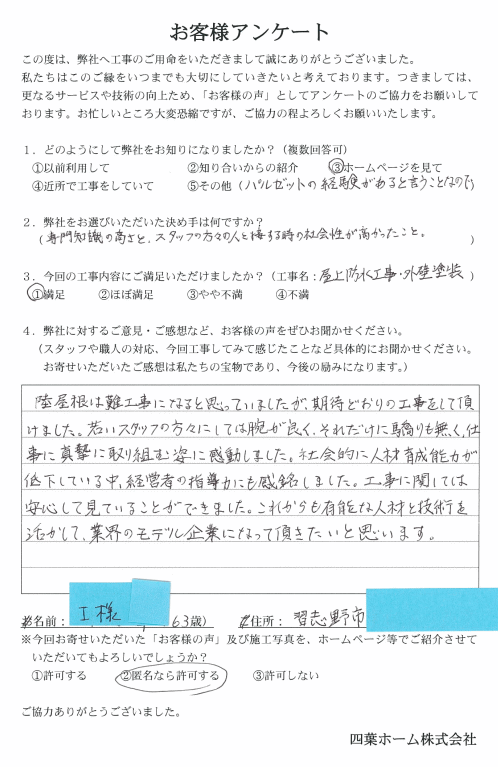 お客様アンケート
この度は、弊社へ工事のご用命をいただきまして誠にありがとうございました。
私たちはこのご縁をいつまでも大切にしていきたいと考えております。つきましては、
更なるサービスや技術の向上ため、「お客様の声」としてアンケートのご協力をお願いして
おります。お忙しいところ大変恐縮ですが、ご協力の程よろしくお願いいたします。
1．どのようにして弊社をお知りになりましたか？（複数回答可）
①以前利用して ②知り合いからの紹介 ③ホームページを見て
④近所で工事をしていて ⑤その他（パルゼットの経験があると言うことなので）
2．弊社をお選びいただいた決め手は何ですか？
（専門知識の高さと、スタッフの方々の人と接する時の社会性が高かったこと。）
3．今回の工事内容にご満足いただけましたか？（工事名：屋上防水工事・外壁塗装）
①満足 ②ほぼ満足 ③やや不満 ④不満
4．弊社に対するご意見・ご感想など、お客様の声をぜひお聞かせください。
（スタッフや職人の対応、今回工事してみて感じたことなど具体的にお聞かせください。
お寄せいただいたご感想は私たちの宝物であり、今後の励みになります。）
陸屋根は難工事になると思っていましたが、期待どおりの工事をして頂
けました。若いスタッフの方々にしては腕が良く、それだけに驕りも無く、仕
事に真摯に取り組む姿に感動しました。社会的に人材育成能力が
低下している中、経営者の指導力にも感銘しました。工事に関しては
安心して見ていることができました。これからも有能な人材と技術を
活かして、業界のモデル企業になって頂きたいと思います。
お名前：I様 63歳） ご住所：習志野市
※今回お寄せいただいた「お客様の声」及び施工写真を、ホームページ等でご紹介させて
いただいてもよろしいでしょうか？
①許可する ②匿名なら許可する ③許可しない
ご協力ありがとうございました。
四葉ホーム株式会社